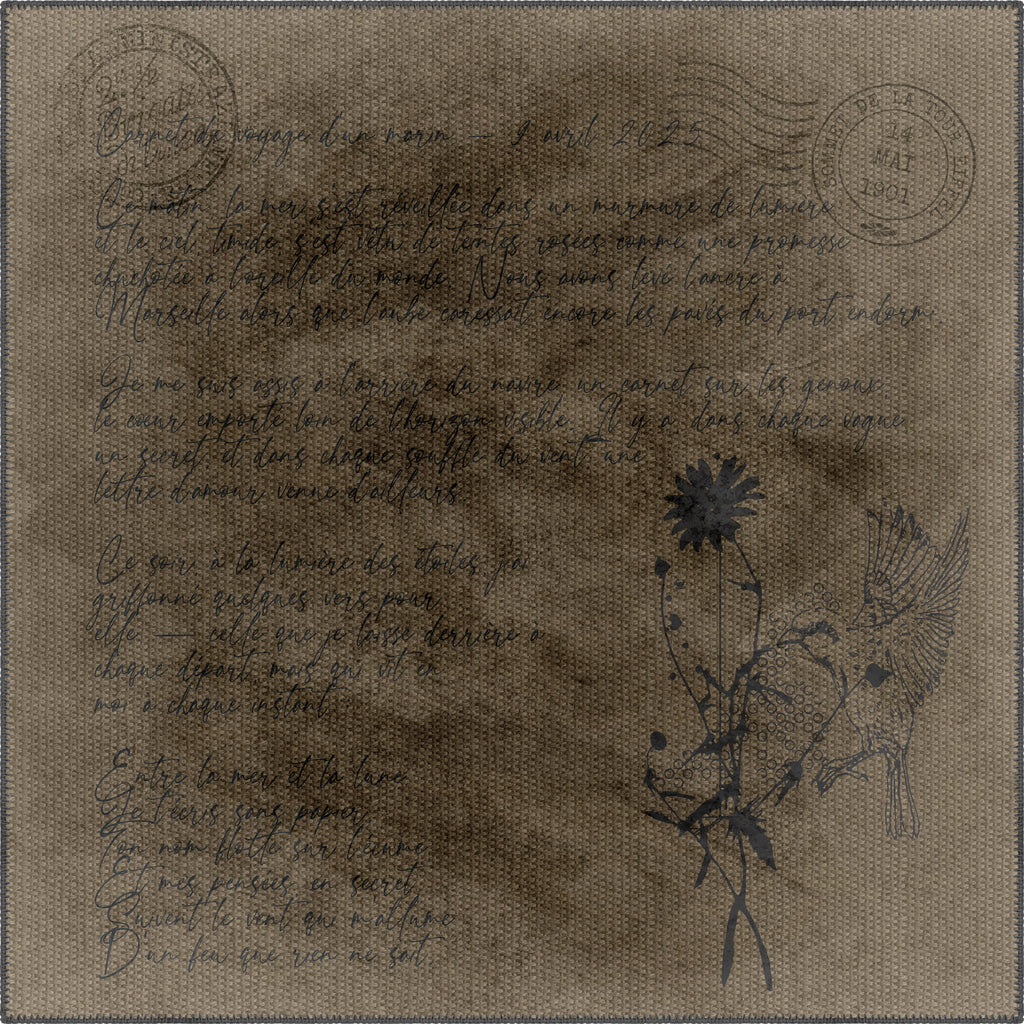 Carnet de voyage d'un marin — 9 avril 2025
Ce matin, la mer s'est réveillée dans un murmure de lumière
et le ciel, timide, s'est vêtu de teintes rosées comme une promesse
chuchotée à l'oreille du monde. Nous avons levé l'ancre à
Marseille alors que l'aube caressait encore les pavés du port endormi.
Je me suis assis à l'arrière du navire, un carnet sur les genoux,
le cœur emporté loin de l'horizon visible. Il y a dans chaque vague
un secret, et dans chaque souffle du vent, une
lettre d'amour venue d'ailleurs.
Ce soir, à la lumière des étoiles, j'ai
griffonné quelques vers pour
elle — celle que je laisse derrière à
chaque départ, mais qui vit en
moi à chaque instant.
Entre la mer et la lune
Je t'écris sans papier,
Ton nom flotte sur l'écume
Et mes pensées, en secret,
Suivent le vent qui m'allume
D'un feu que rien ne sait.
SOMMET DE LA TOUR EIFFEL
14
MAI
1901